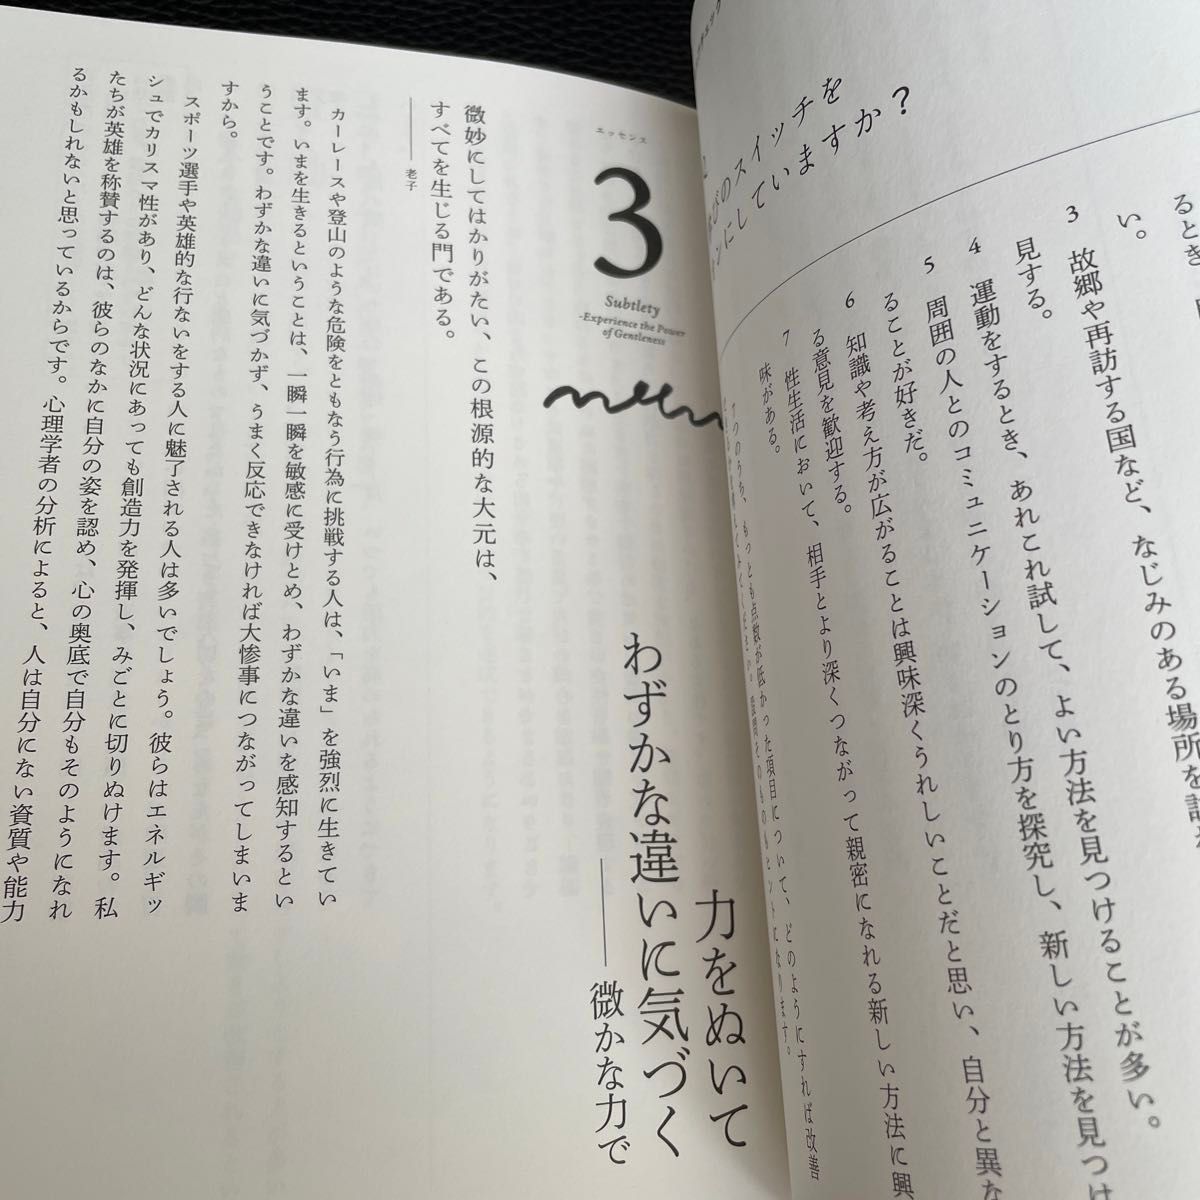 びのスイッチを
ンにしていますか？
るとき
い。
3　故郷や再訪する国など、なじみのある場所を
見する。
4　運動をするとき、あれこれ試して、よい方法を見つけることが多い。
5　周囲の人とのコミュニケーションのとり方を探究し、新しい方法を見つけ
ることが好きだ。
6　知識や考え方が広がることは興味深くうれしいことだと思い、自分と異な
る意見を歓迎する。
7　性生活において、相手とより深くつながって親密になれる新しい方法に興
味がある。
7つのうち、もっとも点数が低かった項目について、どのようにすれば改善
エッセンス
3
Subtlety
-Experience the Power
of Gentleness
力をぬいて
わずかな違いに気づく
――微かな力で
微妙にしてはかりがたい、この根源的な大元は、
すべてを生じる門である。
――老子
カーレースや登山のような危険をともなう行為に挑戦する人は、「いま」を強烈に生きてい
ます。いまを生きるということは、一瞬一瞬を敏感に受けとめ、わずかな違いを感知するとい
うことです。わずかな違いに気づかず、うまく反応できなければ大惨事につながってしまいま
すから。
スポーツ選手や英雄的な行ないをする人に魅了される人は多いでしょう。彼らはエネルギッ
シュでカリスマ性があり、どんな状況にあっても創造力を発揮し、みごとに切りぬけます。私
たちが英雄を称賛するのは、彼らのなかに自分の姿を認め、心の奥底で自分もそのようになれ
るかもしれないと思っているからです。心理学者の分析によると、人は自分にない資質や能力